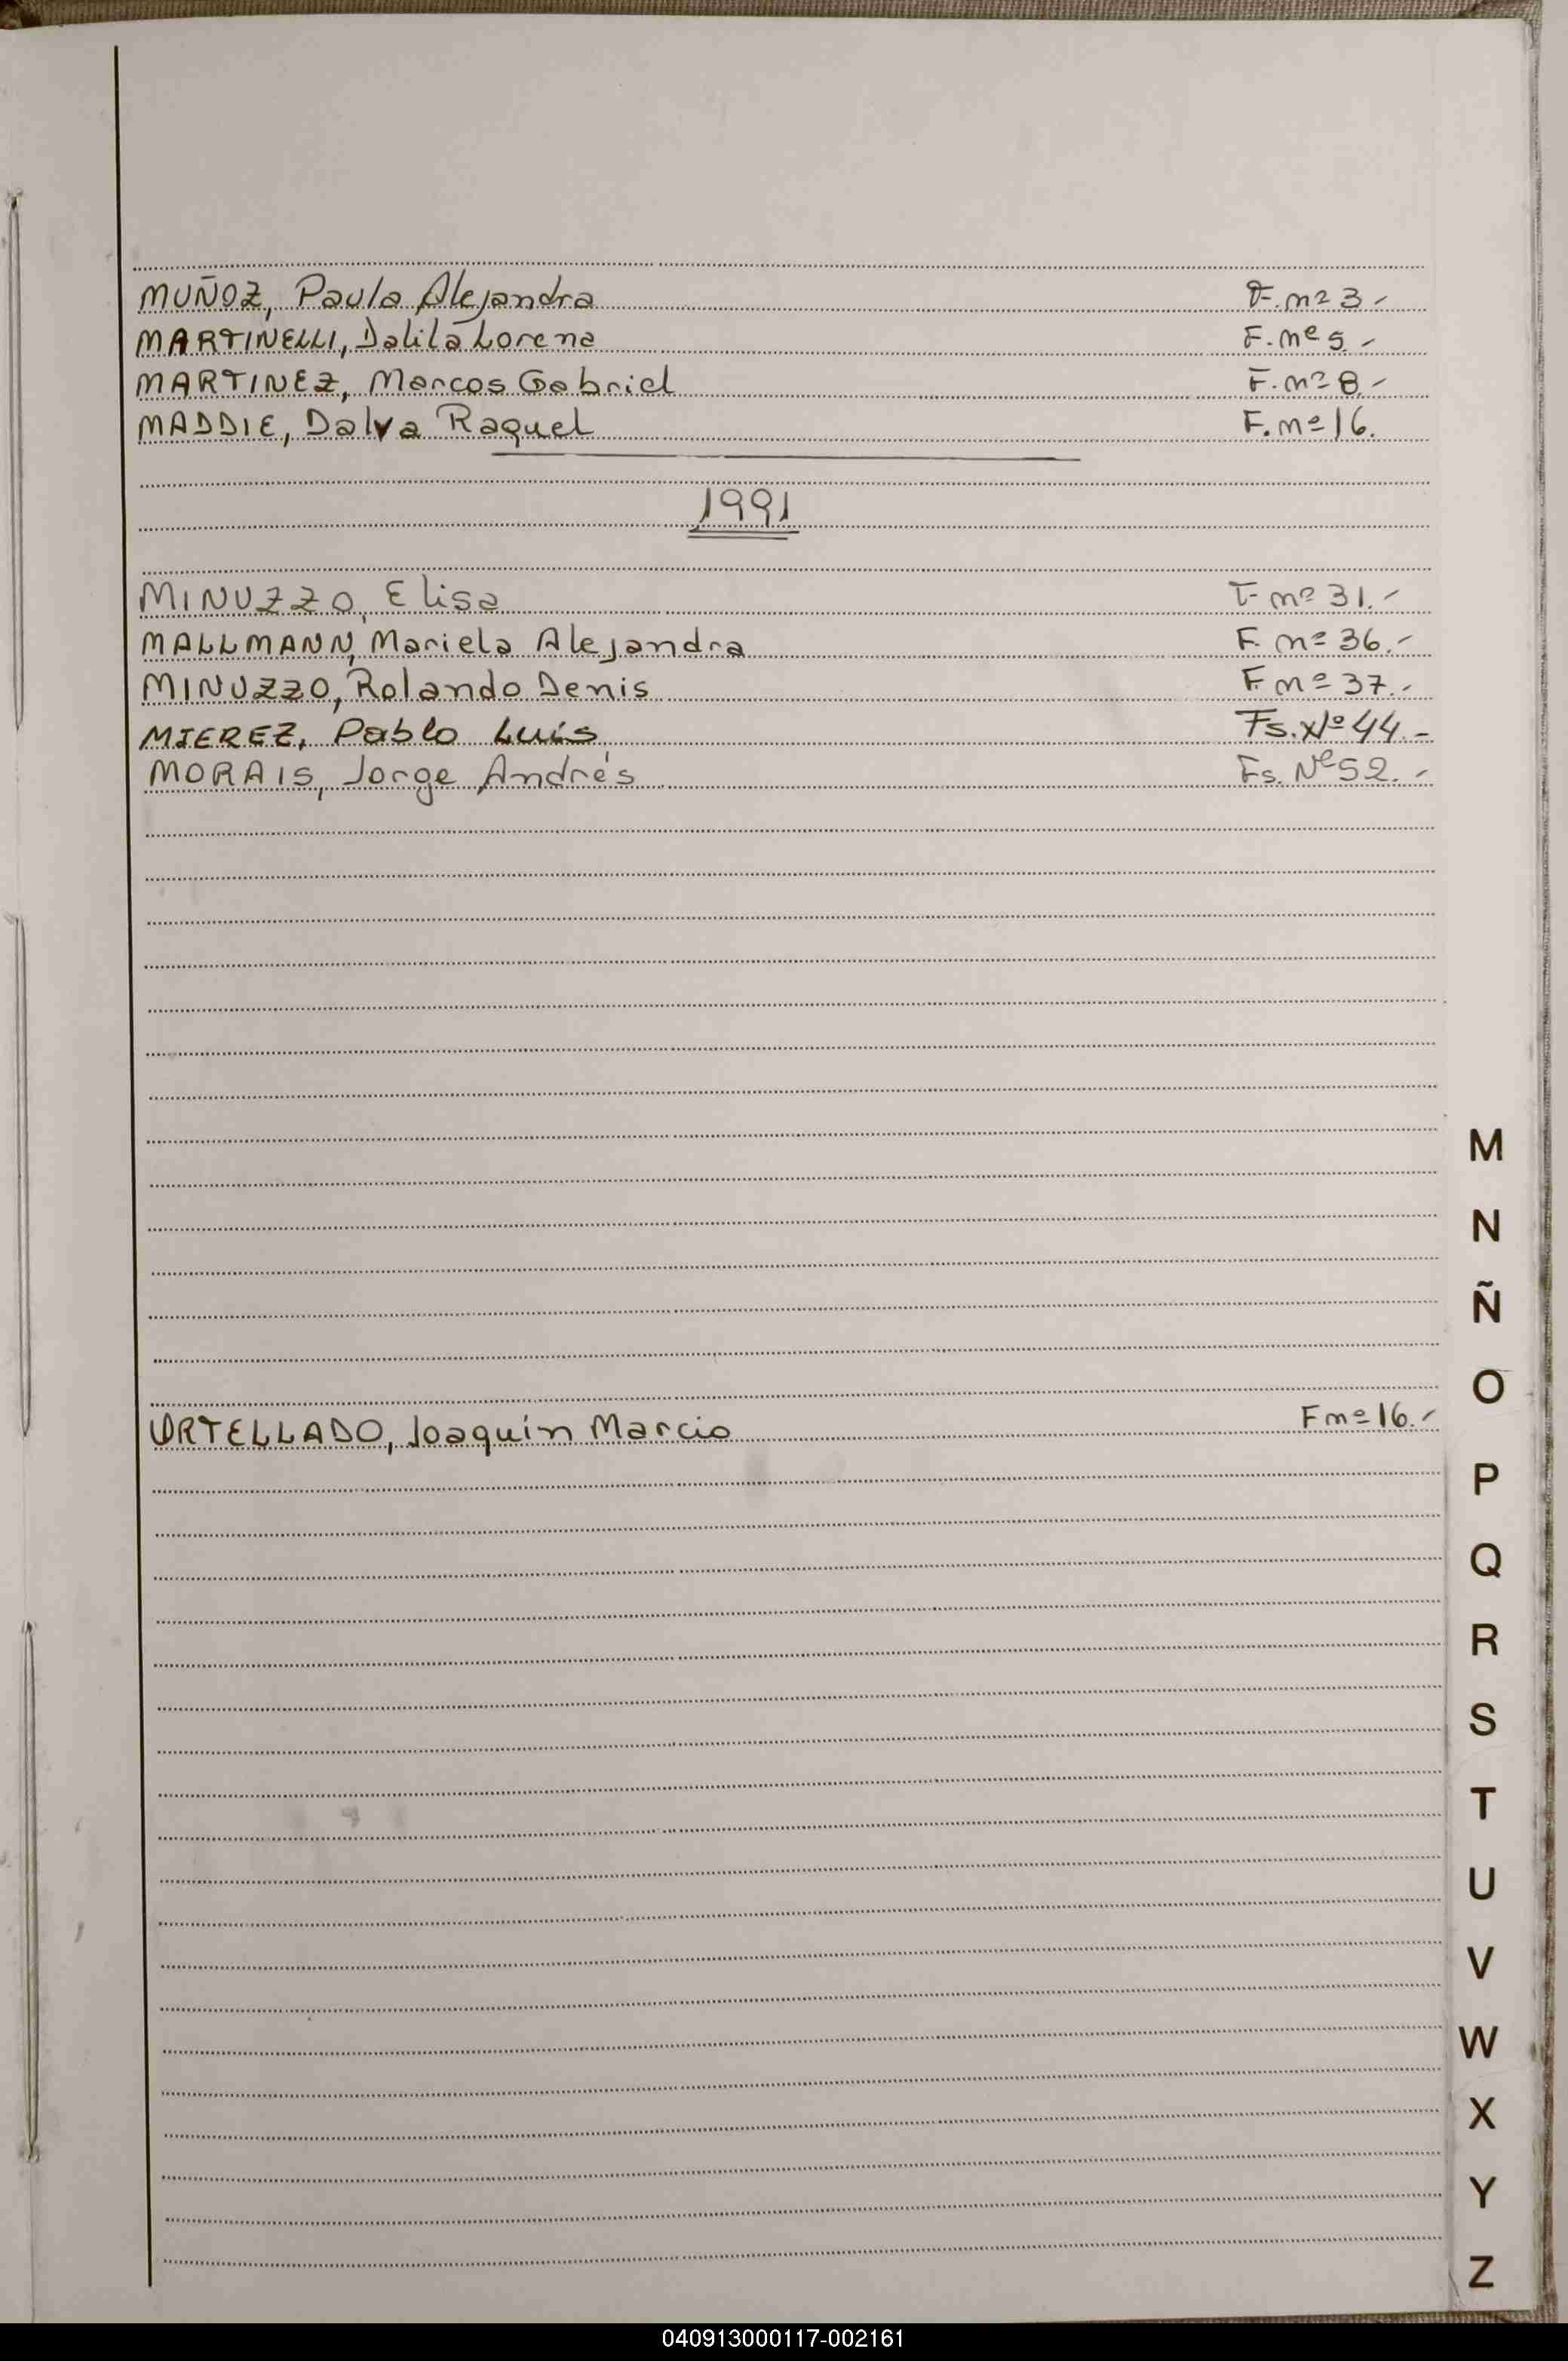 MUÑOZ, Paula Alejandra F. nº 3.-
MARTINELLI, Dalila Lorena F. nº 5.-
MARTINEZ, Marcos Gabriel F. nº 8.-
MADDIE, Dalva Raquel F. nº 16.
1991
MINUZZO, Elisa F nº 31.-
MALLMANN, Mariela Alejandra F. nº 36.-
MINUZZO, Rolando Denis F. nº 37.-
MIEREZ, Pablo Luis Fs. Nº 44.-
MORAIS, Jorge Andrés Fs. Nº 52.-
ORTELLADO, Joaquín Marcio F nº 16.-
M
N
Ñ
O
P
Q
R
S
T
U
V
W
X
Y
Z
040913000117-002161